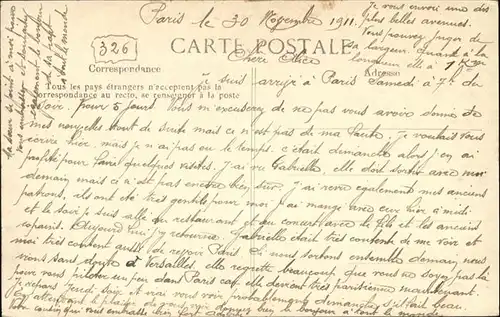 Paris le 30 Novembre 1911.
326
CARTE POSTALE
Correspondance
Adresse
Tous les pays étrangers n'acceptent pas la
correspondance au recto, se renseigner à la poste
Je vous envoie une des
plus belles avenues.
Vous pouvez juger de
sa largeur. Quand à la
longueur elle a 1
Chère Alice
Je suis arrivé à Paris Samedi à 7h du
soir. Pour 5 jours. Vous m'excuserez de ne pas vous avoir donné de
mes nouvelles tout de suite mais ce n'est pas de ma faute. Je voulais vous
écrire hier. mais je n'ai pas eu le temps. c'était dimanche alors j'en ai
profité pour faire quelques visites. J'ai vu Gabrielle, elle doit sortir avec moi
demain mais ce n'est pas encore bien sûr. J'ai revu également mes anciens
patrons, ils ont été très gentils pour moi j'ai mangé avec eux hier à midi
et le soir je suis allé au restaurant et au concert avec le fils et les anciens
copains. Aujourd'hui j'y retourne. Gabrielle était très contente de me voir et
moi très content aussi de revoir Paris. Si nous sortons ensemble demain nous
irons sans doute à Versailles. elle regrette beaucoup que vous ne soyez pas là
pour vous piloter un peu dans Paris car elle devient très parisienne maintenant.
Je repars Jeudi soir et vrai vous voir probablement dimanche s'il fait beau.
En attendant le plaisir de vous voir
cousin qui vous embrasse bien fort